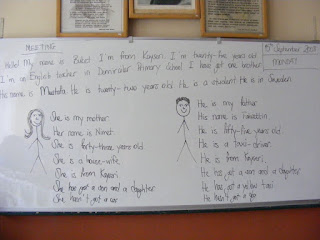 MEETING
5th September
MONDAY
Hello! My name is Bulut. I'm from Kayseri. I'm twenty-five years old.
I'm an English teacher in Primary School. I have got one brother.
His name is Mustafa. He is twenty-two years old. He is a student. He is in Sweden.
She is my mother.
Her name is Nimet.
She is forty-three years old.
She is a house-wife.
She is from Kayseri.
She has got a son and a daughter
She hasn't got a car
He is my father
His name is
He is fifty-five years old.
He is a taxi-driver.
He is from Kayseri.
He has got a son and a daughter
He has got a yellow taxi
He hasn't got a